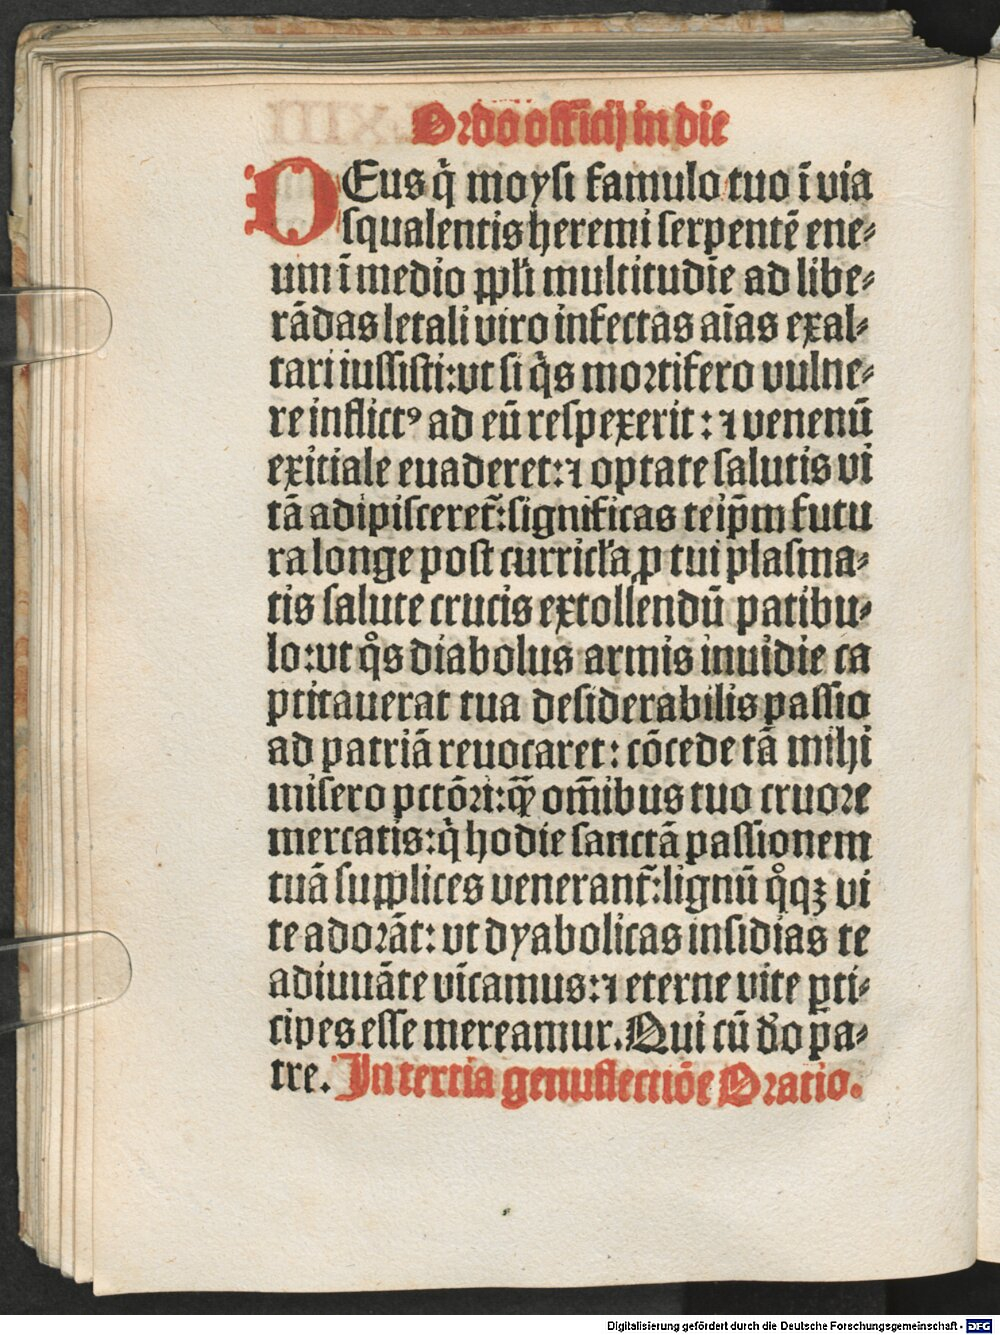 Ordo officij in die
DEus q̇ moysi famulo tuo ī via
squalentis heremi serpentē ene⸗
um ī medio ppl̄i multitudīe ad libe⸗
rādas letali viro infectas aīas exal⸗
tari iussisti:vt si q̇s mortifero vulne⸗
re inflictꝰ ad eū respexerit: ⁊ venenū
exitiale euaderet:⁊ optate salutis vi
tā adipisceret̄:significas teip̄m futu
ra longe post curricl̓a ꝓ tui plasma⸗
tis salute crucis extollendū patibu⸗
lo:vt q̊s diabolus armis inuidie ca
ptitauerat tua desiderabilis passio
ad patriā reuocaret: cōcede tā mihi
misero pctōri:qꝫ̄ om̄ibus tuo cruore
mercatis:q̇ hodie sanctā passionem
tuā supplices venerant̄:lignū q̊qꝫ vi
te adorāt: vt dyabolicas insidias te
adiuuāte vīcamus:⁊ eterne vite ꝑti⸗
cipes esse mereamur. Qui cū d̓o pa⸗
tre. In tertia genuflectiōe Oratio.
Digitalisierung gefördert durch die Deutsche Forschungsgemeinschaft - DFG